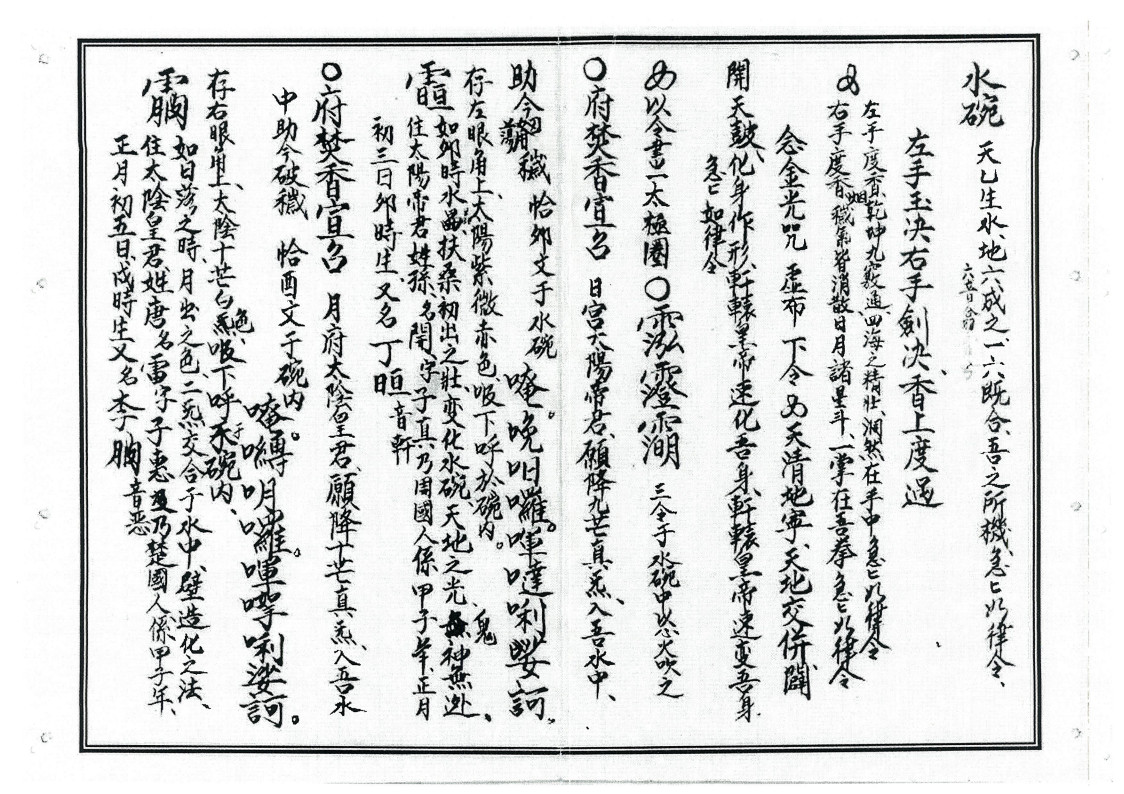 水碗 天乙生水、地六成之、一六既合、吾之所機、急〻如律令、
左手玉決右手劍決、香上度過
左手度香、乾坤九竅通、四海之精壯、洞然在手中、急〻如律令
右手度香烟、穢氣皆消散、日月諸星斗、一掌在吾拳、急〻如律令
念金光咒 虛布 下令 天清地寧、天地交併、闢
開天鼓、化身作形、軒轅皇帝速化吾身、軒轅皇帝速変吾身
急〻如律令
以令書一太極圈〇 三令于水碗中 以心火吹之
〇府焚香宣召 日宮太陽帝君、願降九芒真炁、入吾水中、
助今 穢 恰卯文于水碗 唵。晚 囉。 噠唎 訶。
存左眼角上、太陽紫微赤色、吸下呼於碗內。
如卯時水 扶桑初出之壯 变化水碗 天地之光 鬼神無処、
住太陽帝君姓孫、名開、字子真、乃周國人、係甲子年、正月
初三日卯時生、又名丁𣆀 音軒
〇府焚香宣召 月府太陰皇君、願降十芒真炁、入吾水
中助今破穢 恰酉文于碗內 唵。 囉 唎娑訶。
存右眼角上、太陰十芒白色、吸下呼于水碗內、
如日落之時、月出之色、二炁交合于水中、壁造化之法、
住太陰皇君、姓唐名雷、字子惠、乃楚國人、係甲子年、
正月初五日、戌時生、又名李 音恶